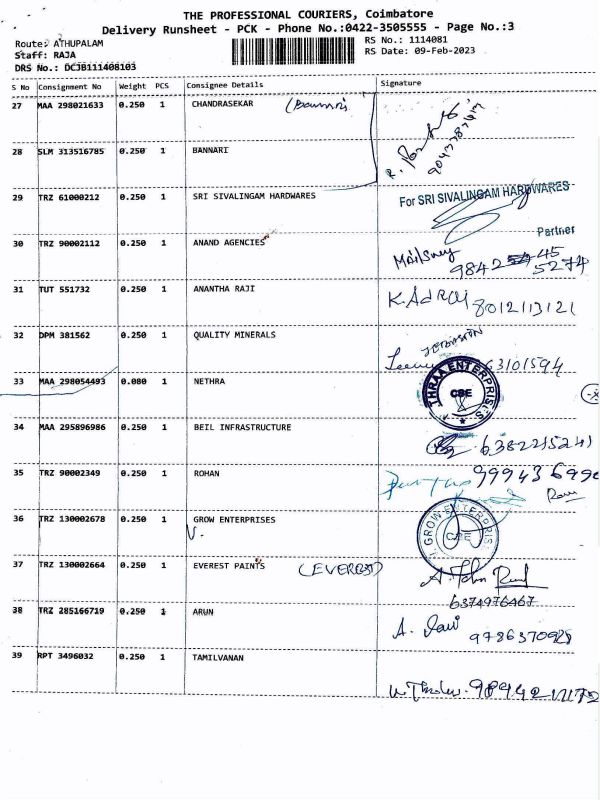 THE PROFESSIONAL COURIERS, Coimbatore
Delivery Runsheet - PCK - Phone No.:0422-3505555 - Page No.:3
Route: ATHUPALAM
RS No.: 1114081
Staff: RAJA
RS Date: 09-Feb-2023
DRS No.: DCJB111408103
S No Consignment No Weight PCS Consignee Details Signature
27 MAA 298021633 0.250 1 CHANDRASEKAR
28 SLM 313516785 0.250 1 BANNARI
29 TRZ 61000212 0.250 1 SRI SIVALINGAM HARDWARES
For SRI SIVALINGAM HARDWARES
Partner
30 TRZ 90002112 0.250 1 ANAND AGENCIES
31 TUT 551732 0.250 1 ANANTHA RAJI
8012113121
32 DPM 381562 0.250 1 QUALITY MINERALS
63101594
33 MAA 298054493 0.080 1 NETHRA
THRAA ENTERPRISES
CBE
34 MAA 295896986 0.250 1 BEIL INFRASTRUCTURE
6382215241
35 TRZ 90002349 0.250 1 ROHAN
36 TRZ 130002678 0.250 1 GROW ENTERPRISES
GROW ENTERPRIS
CBE
37 TRZ 130002664 0.250 1 EVEREST PAINTS
6374976467
38 TRZ 285166719 0.250 1 ARUN
9786370928
39 RPT 3496032 0.250 1 TAMILVANAN